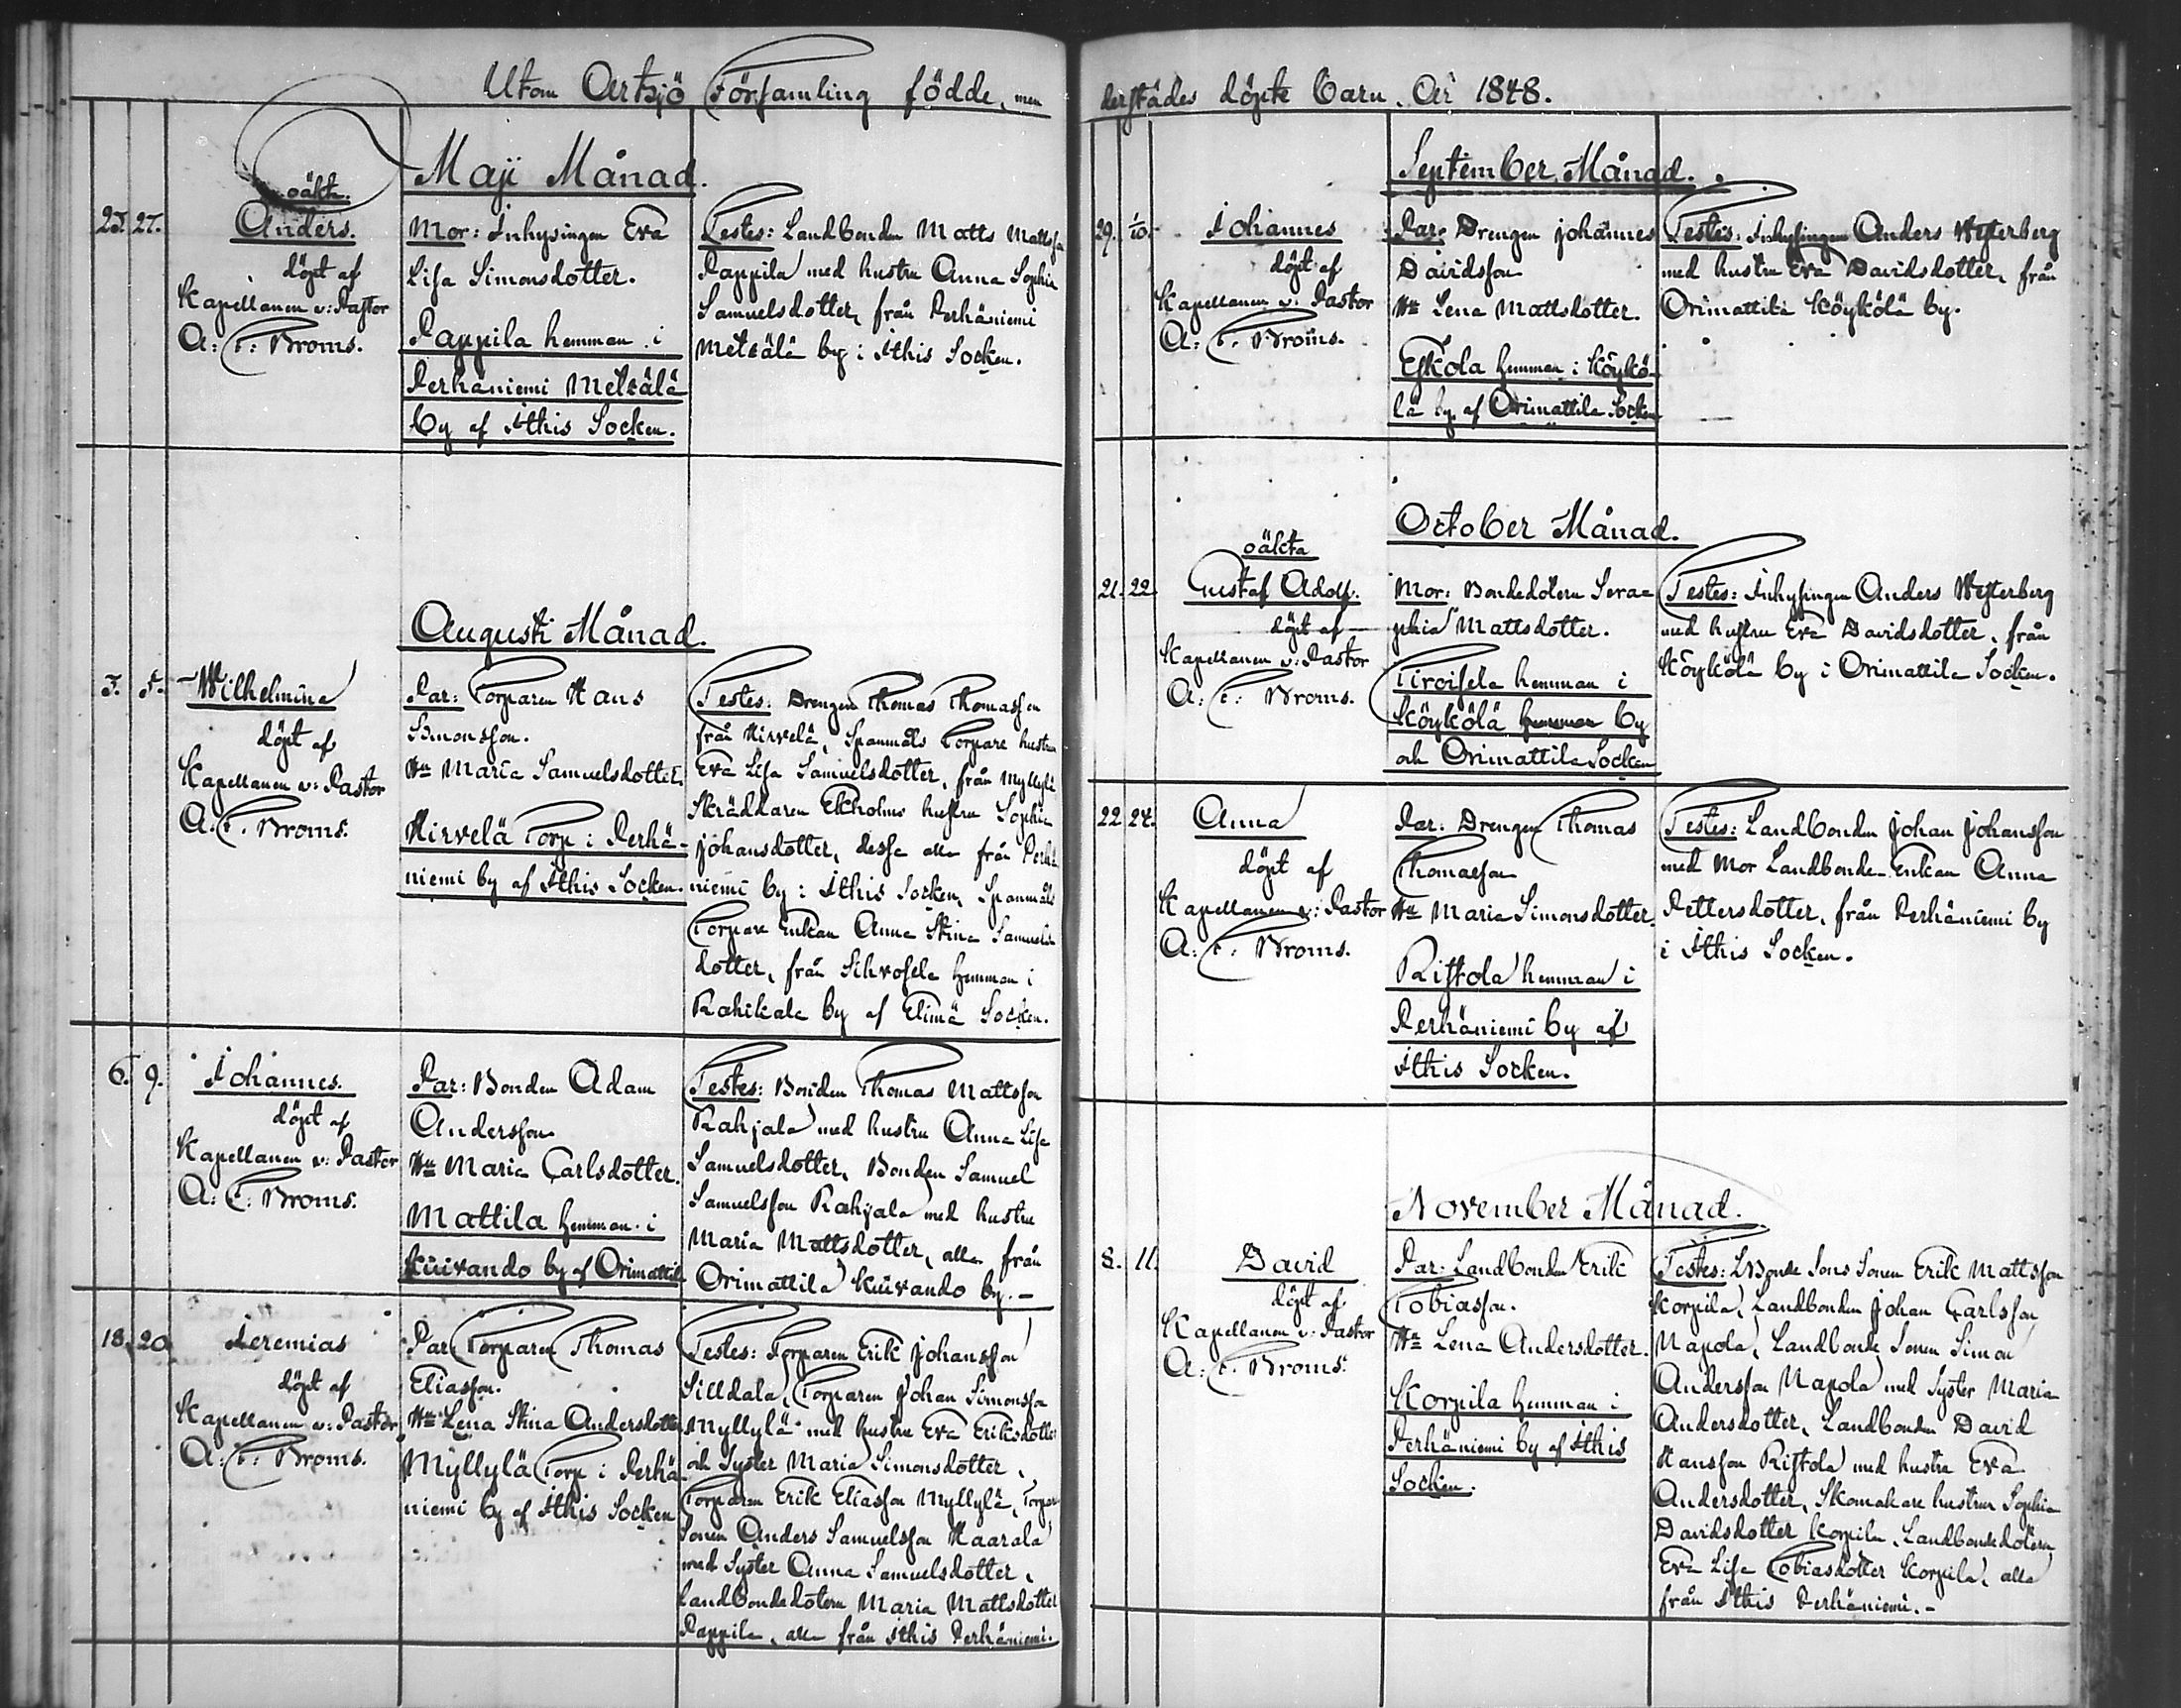 Utom Artsjö Församling födde, men
Maji Månad.
25. 27.
oäkta.
Anders.
döpt af
Kapellanen v: Pastor
A: F: Broms.
Mor: Inhysingen Eva
Lisa Simonsdotter.
Pappila hemman i
Perhäniemi Metsälä
by af Ithis Socken.
Testes: Landbonden Matts Mattsson
Pappila med hustru Anna Sophia
Samuelsdotter, från Perhäniemi
Metsälä by i Ithis Socken.
Augusti Månad.
3. 5.
Wilhelmina
döpt af
Kapellanen v: Pastor
A. F. Broms.
Par: Torparen Hans
Simonsson.
Hu Maria Samuelsdotter.
Hirvelä Torp i Perhä-
niemi by af Ithis Socken.
Testes: Drengen Thomas Thomasson
från Hirvelä, Spanmåls Torpare hustrun
Eva Lisa Samuelsdotter, från Myllylä
Skräddaren Ekholms hustru Sophia
Johansdotter, dessa alla från Perhä
niemi by i Ithis Socken, Spanmåls
Torpare Enkan Anna Stina Samuels
dotter, från Sihvosela hemman i
Rahikala by af Elimä Socken.
6. 9.
Johannes.
döpt af
Kapellanen v: Pastor
A: F: Broms.
Par: Bonden Adam
Andersson
Hu Maria Carlsdotter.
Mattila hemman i
Kuivando by af Orimattila
Testes: Bonden Thomas Mattsson
Rahjala med hustru Anna Lisa
Samuelsdotter, Bonden Samuel
Samuelsson Rahjala med hustru
Maria Mattsdotter, alla från
Orimattila Kuivando by. —
18. 20
Jeremias
döpt af
Kapellanen v: Pastor
A: F: Broms.
Par: Torparen Thomas
Eliasson.
Hu Lena Stina Andersdotter
Myllylä Torp i Perhä
niemi by af Ithis Socken
Testes: Torparen Erik Johansson
Silldala, Torparen Johan Simonsson
Myllylä med hustru Eva Eriksdotter
och Syster Maria Simonsdotter,
Torparen Erik Eliasson Myllylä, Torpare
Sonen Anders Samuelsson Haarala
med Syster Anna Samuelsdotter,
Landbondedotern Maria Mattsdotter
Pappila, alla från Ithis Perhäniemi.
derstädes döpte barn. År 1848.
September Månad.
29. 1/10.
Johannes
döpt af
Kapellanen v: Pastor
A: F: Broms.
Par: Drengen Johannes
Davidsson
Hu Lena Mattsdotter.
Eskola hemman i Köykö-
lä by af Orimattila Socken
Testes: Inhysingen Anders Westerberg
med hustru Eva Davidsdotter, från
Orimattila Köykölä by.
October Månad.
21. 22.
oäkta
Gustaf Adolf.
döpt af
Kapellanen v: Pastor
A: F: Broms.
Mor: Bondedotern Sera=
phia Mattsdotter.
hemman i
Köykölä hemman by
och Orimattila Socken
Testes: Inhysingen Anders Westerberg
med hustru Eva Davidsdotter, från
Köykölä by i Orimattila Socken.
22. 24.
Anna
döpt af
Kapellanen v: Pastor
A: F: Broms.
Par: Drengen Thomas
Thomasson
Hu Maria Simonsdotter.
Ristola hemman i
Perhäniemi by af
Ithis Socken.
Testes: Landbonden Johan Johansson
med Mor Landbonde Enkan Anna
Pettersdotter, från Perhäniemi by
i Ithis Socken.
November Månad.
8. 11.
David
döpt af
Kapellanen v: Pastor
A: F: Broms.
Par: Landbonden Erik
Tobiasson.
Hu Lena Andersdotter.
Korpila hemman i
Perhäniemi by af Ithis
Socken.
Testes: LBonde Sons Sonen Erik Mattsson
Korpila, Landbonden Johan Carlsson
Napola, Landbonde Sonen Simon
Andersson Napola med Syster Maria
Andersdotter, Landbonden David
Hansson Ristola med hustru Eva
Andersdotter, Skomakare hustrun Sophia
Davidsdotter Korpila, Landbondedotern
Eva Lisa Tobiasdotter Korpila, alla
från Ithis Perhäniemi. —